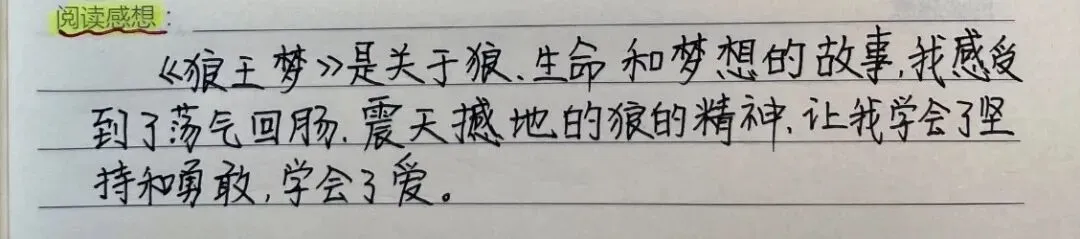 阅读感想：
《狼王梦》是关于狼、生命和梦想的故事,我感受
到了荡气回肠、震天撼地的狼的精神、让我学会了坚
持和勇敢,学会了爱。